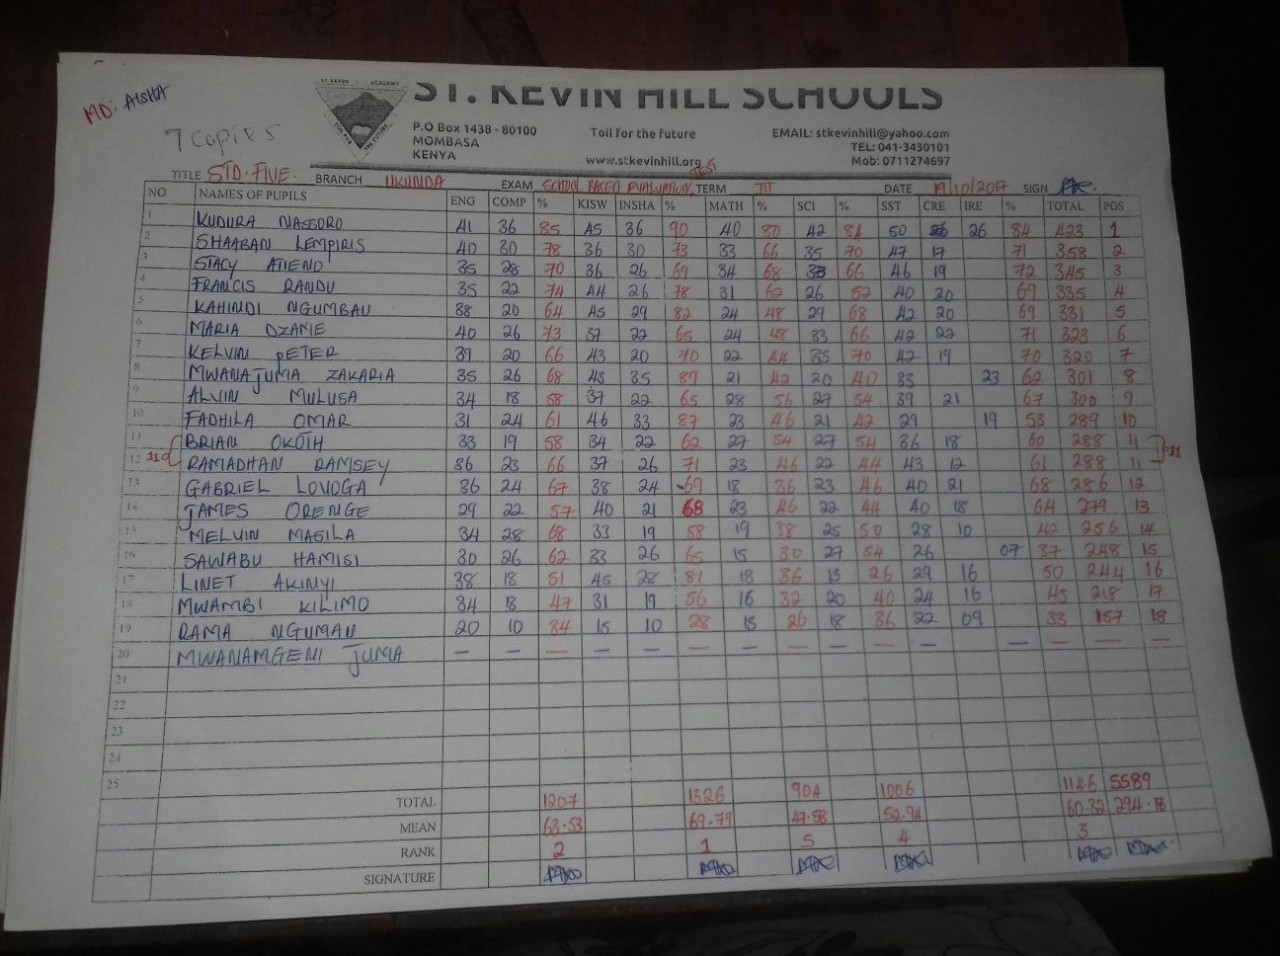 MD: AISHA
7 Copies
ST. KEVIN HILL SCHOOLS
P.O Box 1438 - 80100
MOMBASA
KENYA
Toil for the future
www.stkevinhill.org
EMAIL: stkevinhill@yahoo.com
TEL: 041-3430101
Mob: 0711274697
TITLE STD. FIVE. BRANCH UKUNDA EXAM SCHOOL BASED EVALUATION TEST TERM III DATE 19/10/2017 SIGN
NO NAMES OF PUPILS ENG COMP % KISW INSHA % MATH % SCI % SST CRE IRE % TOTAL POS
1 KUDURA NASSORO 41 36 85 45 36 90 40 80 42 84 50 26 84 423 1
2 SHAABAN LEMPIRIS 40 30 78 36 30 73 33 66 35 70 47 17 71 358 2
3 STACY ATIENO 35 28 70 36 26 69 34 68 33 66 46 19 72 345 3
4 FRANCIS RANDU 35 22 74 44 26 78 31 62 26 52 40 20 69 335 4
5 KAHINDI NGUMBAU 38 20 64 45 29 82 24 48 29 68 42 20 69 331 5
6 MARIA DZAME 40 26 73 37 22 65 24 48 33 66 42 22 71 323 6
7 KELVIN PETER 39 20 66 43 20 70 22 44 35 70 42 19 70 320 7
8 MWANAJUMA ZAKARIA 35 26 68 45 35 89 21 42 20 40 35 23 62 301 8
9 ALVIN MULUSA 34 18 58 37 22 65 28 56 27 54 39 21 67 300 9
10 FADHILA OMAR 31 24 61 46 33 87 23 46 21 42 29 19 53 289 10
11 BRIAN OKOTH 33 19 58 34 22 62 27 54 27 54 36 18 60 288 11
12 RAMADHAN RAMSEY 36 23 66 37 26 71 23 46 22 44 43 12 61 288 11
13 GABRIEL LOVOGA 36 24 67 38 24 69 18 36 23 46 40 21 68 286 12
14 JAMES ORENGE 29 22 57 40 21 68 23 46 22 44 40 18 64 279 13
15 MELVIN MAGILA 34 28 68 33 19 58 19 38 25 50 28 10 42 256 14
16 SAWABU HAMISI 30 26 62 33 26 65 15 30 27 54 26 07 37 248 15
17 LINET AKINYI 38 18 51 45 28 81 18 36 13 26 29 16 50 244 16
18 MWAMBI KILIMO 34 8 47 31 19 56 16 32 20 40 24 16 45 218 17
19 RAMA NGUMAU 20 10 34 15 10 28 13 26 18 36 22 09 33 157 18
20 MWANAMGENI JUMA — — — — — — — — — — — — — — —
21
22
23
24
25
TOTAL 1207 1326 904 1006 1146 5589
MEAN 63.53 69.79 47.58 52.94 60.32 294.18
RANK 2 1 5 4 3
SIGNATURE